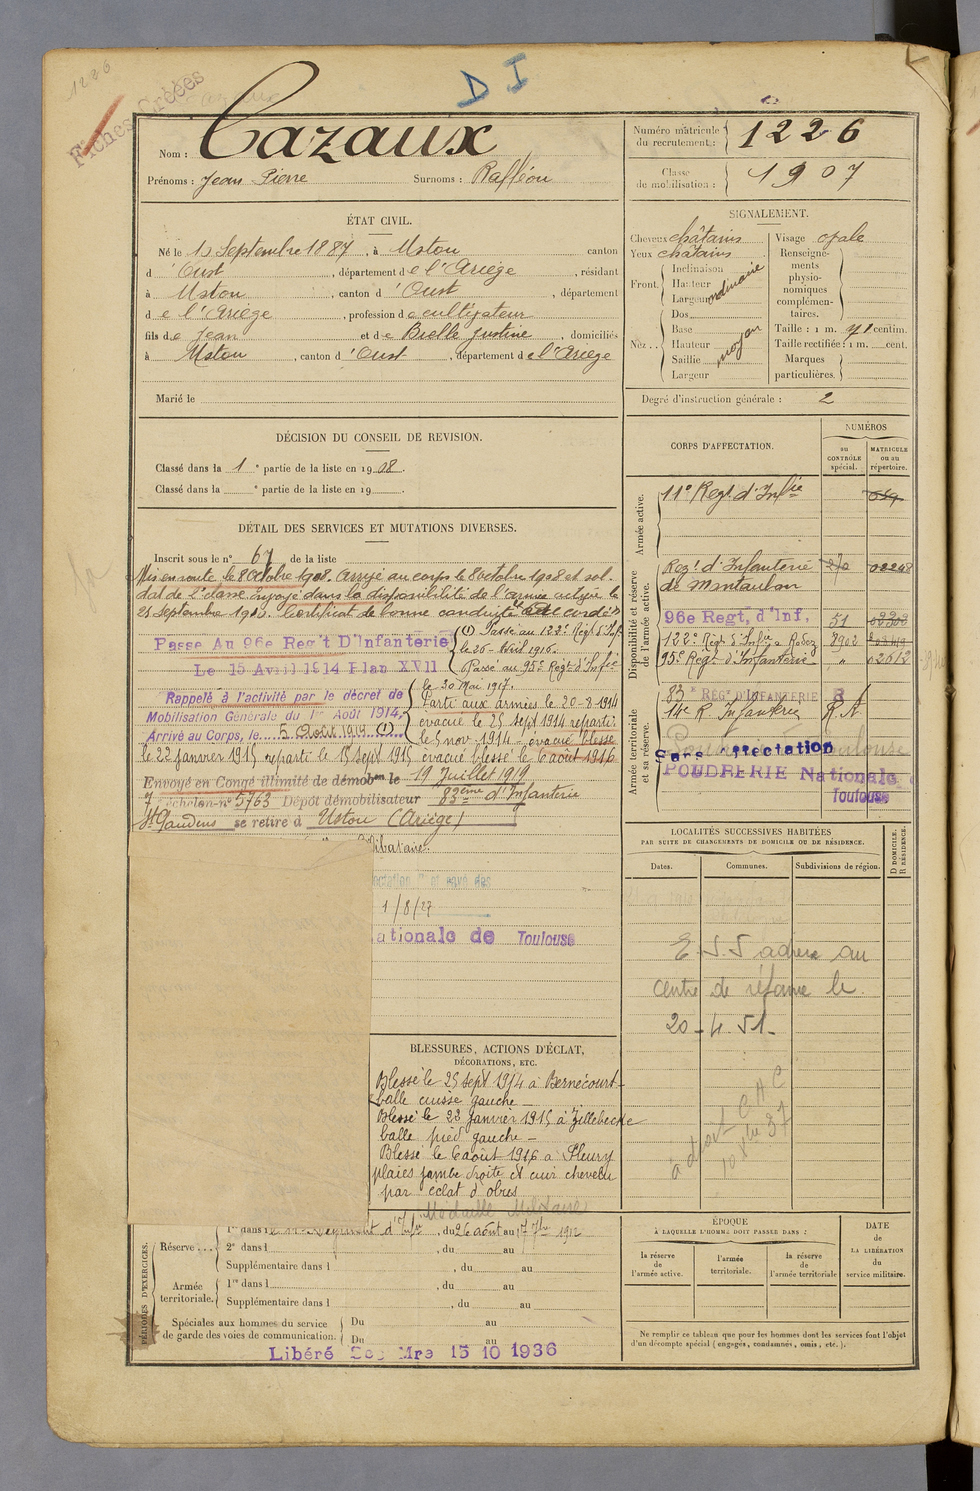 1226
Fiches Créées
D I
Nom : Cazaux
Prénoms : Jean Pierre Surnoms : Rafféou
Numéro matricule du recrutement : 1226
Classe de mobilisation : 1907
ÉTAT CIVIL.
Né le 12 Septembre 1887, à Ustou canton
d'Oust, département de l'Ariège, résidant
à Ustou, canton d'Oust, département
de l'Ariège, profession de cultivateur
fils de Jean et de Bielle Justine, domiciliés
à Ustou, canton d'Oust, département de l'Ariège
Marié le
SIGNALEMENT.
Cheveux châtains
Yeux châtains
Front. Inclinaison
Hauteur ordinaire
Largeur
Nez.. Dos
Base
Hauteur moyen
Saillie
Largeur
Visage ovale
Renseignements physionomiques complémentaires.
Taille : 1 m. 71 centim.
Taille rectifiée : 1 m. cent.
Marques particulières.
Degré d'instruction générale : 2
DÉCISION DU CONSEIL DE REVISION.
Classé dans la 1e partie de la liste en 1908.
Classé dans la e partie de la liste en 19
DÉTAIL DES SERVICES ET MUTATIONS DIVERSES.
Inscrit sous le n° 67 de la liste
Mis en route le 8 Octobre 1908. Arrivé au corps le 8 octobre 1908 et sol-
dat de 2e classe. Envoyé dans la disponibilité de l'armée active le
25 septembre 1910. Certificat de bonne conduite accordé
Passe Au 96e Reg't D'Infanterie
Le 15 Avril 1914 Plan XVII
(1) Passé au 122e Régt d'Infie
le 26 Avril 1916.
Passé au 95e Régt d'Infie
le 30 Mai 1917.
Rappelé à l'activité par le décret de
Mobilisation Générale du 1er Août 1914.
Arrivé au Corps, le 5 Août 1914 (1)
Parti aux armées le 20-9 1914
évacué le 25 sept 1914 reparti
le 5 nov. 1914 - évacué blessé
le 22 janvier 1915 reparti le 15 sept 1915 évacué blessé le 6 août 1916
Envoyé en Congé illimité de démobon le 19 Juillet 1919
7 échelon n° 5763 Dépôt démobilisateur 83ème d'Infanterie
St Gaudens se retire à Ustou (Ariège)
1/8/27
ationale de Toulouse
CORPS D'AFFECTATION.
NUMÉROS
au CONTRÔLE spécial.
MATRICULE ou au répertoire.
Armée active.
11e Régt d'Infie
Disponibilité et réserve de l'armée active.
Regt d'Infanterie
de Montauban
96e Regt, d'Inf, 51
122e Régt d'Infie Rodez
95e Régt d'Infanterie
Armée territoriale et sa réserve.
83e REGt D'INFANTERIE R
14e R. Infanterie R.A.
Sans affectation
POUDRERIE Nationale
Toulouse
LOCALITÉS SUCCESSIVES HABITÉES
PAR SUITE DE CHANGEMENTS DE DOMICILE OU DE RÉSIDENCE.
D DOMICILE. R RÉSIDENCE.
Dates. Communes. Subdivisions de région.
E.S.S adressé au
centre de réforme le
20-4-51-
BLESSURES, ACTIONS D'ÉCLAT,
DÉCORATIONS, ETC.
Blessé le 25 sept 1914 à Bernécourt-
balle cuisse gauche -
Blessé le 22 janvier 1915 à Zillebecke
balle pied gauche -
Blessé le 6 août 1916 à Fleury
plaies jambe droite et cuir chevelu
par éclat d'obus
Médaille Militaire
PÉRIODES D'EXERCICES.
Réserve... 1re dans l , du 26 août au 17 7bre 1912
2e dans l , du au
Supplémentaire dans l , du au
Armée territoriale. 1re dans l , du au
Supplémentaire dans l , du au
Spéciales aux hommes du service de garde des voies de communication. Du au
Du au
Libéré Mre 15 10 1936
ÉPOQUE
À LAQUELLE L'HOMME DOIT PASSER DANS :
la réserve de l'armée active.
l'armée territoriale.
la réserve de l'armée territoriale
DATE de LA LIBÉRATION du service militaire.
Ne remplir ce tableau que pour les hommes dont les services font l'objet
d'un décompte spécial (engagés, condamnés, omis, etc.).